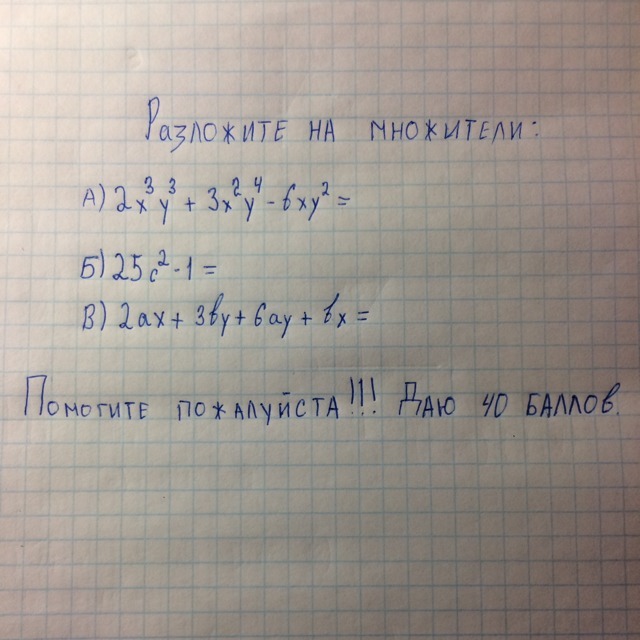 Разложите на множители:
А) 2x³y³ + 3x²y⁴ - 6xy² =
Б) 25c² - 1 =
В) 2ax + 3вy + 6ay + вx =
Помогите пожалуйста!!! Даю 40 баллов.